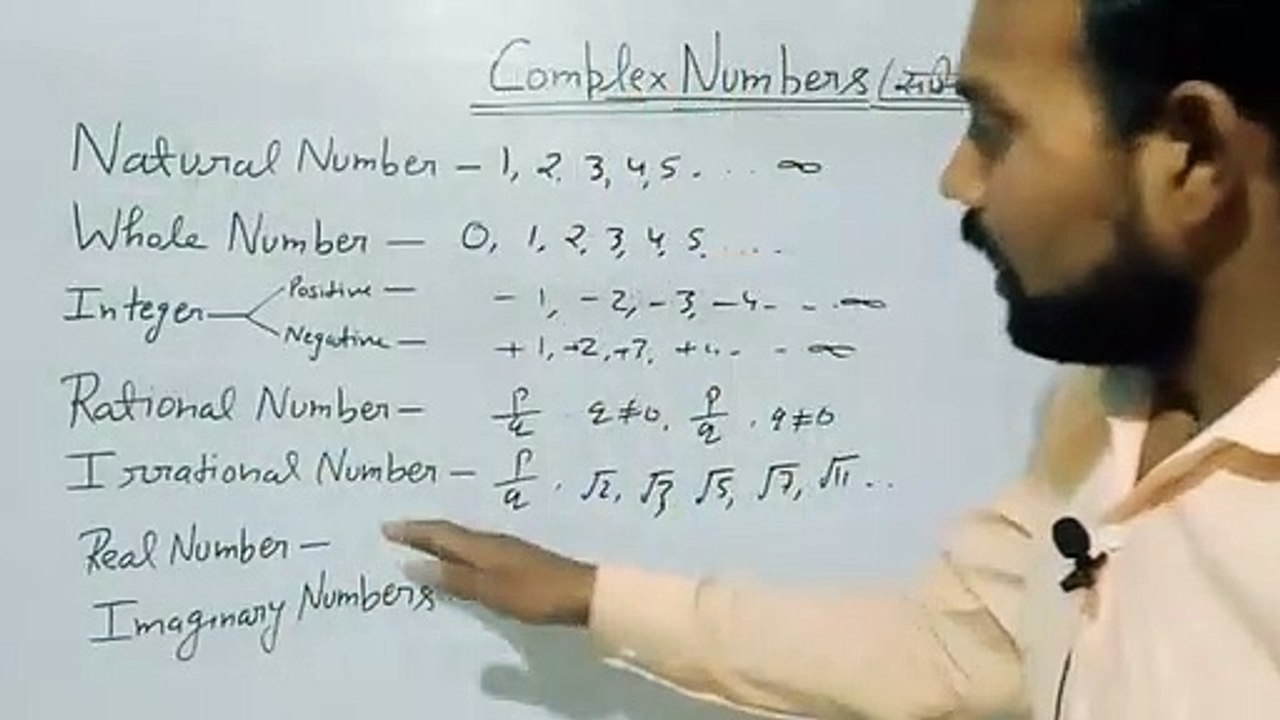 Complex Numbers (
Natural Number – 1, 2, 3, 4, 5 . . . . ∞
Whole Number – 0, 1, 2, 3, 4, 5, . . . .
Integer
Positive – -1, -2, -3, -4 - - - ∞
Negative – +1, +2, +7, +4 - - ∞
Rational Number – p/q . q≠0, p/q . q≠0
Irrational Number – p/q . √2, √3, √5, √7, √11 . .
Real Number –
Imaginary Numbers